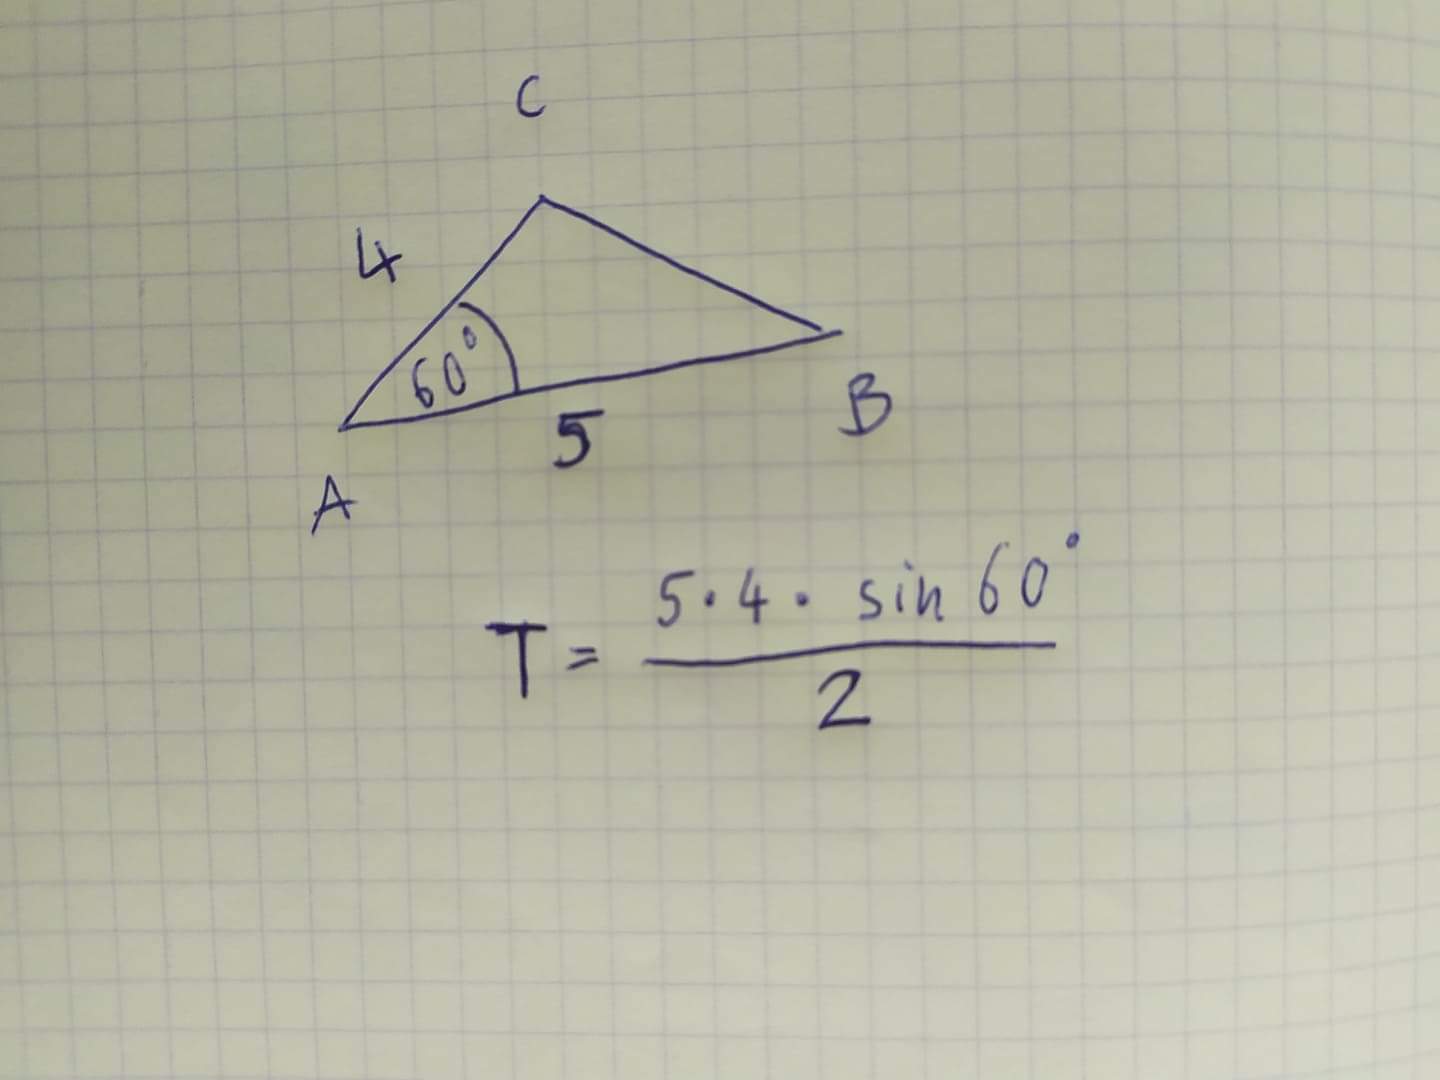 C
4
60°
5
B
A
T = 5·4· sin 60° / 2